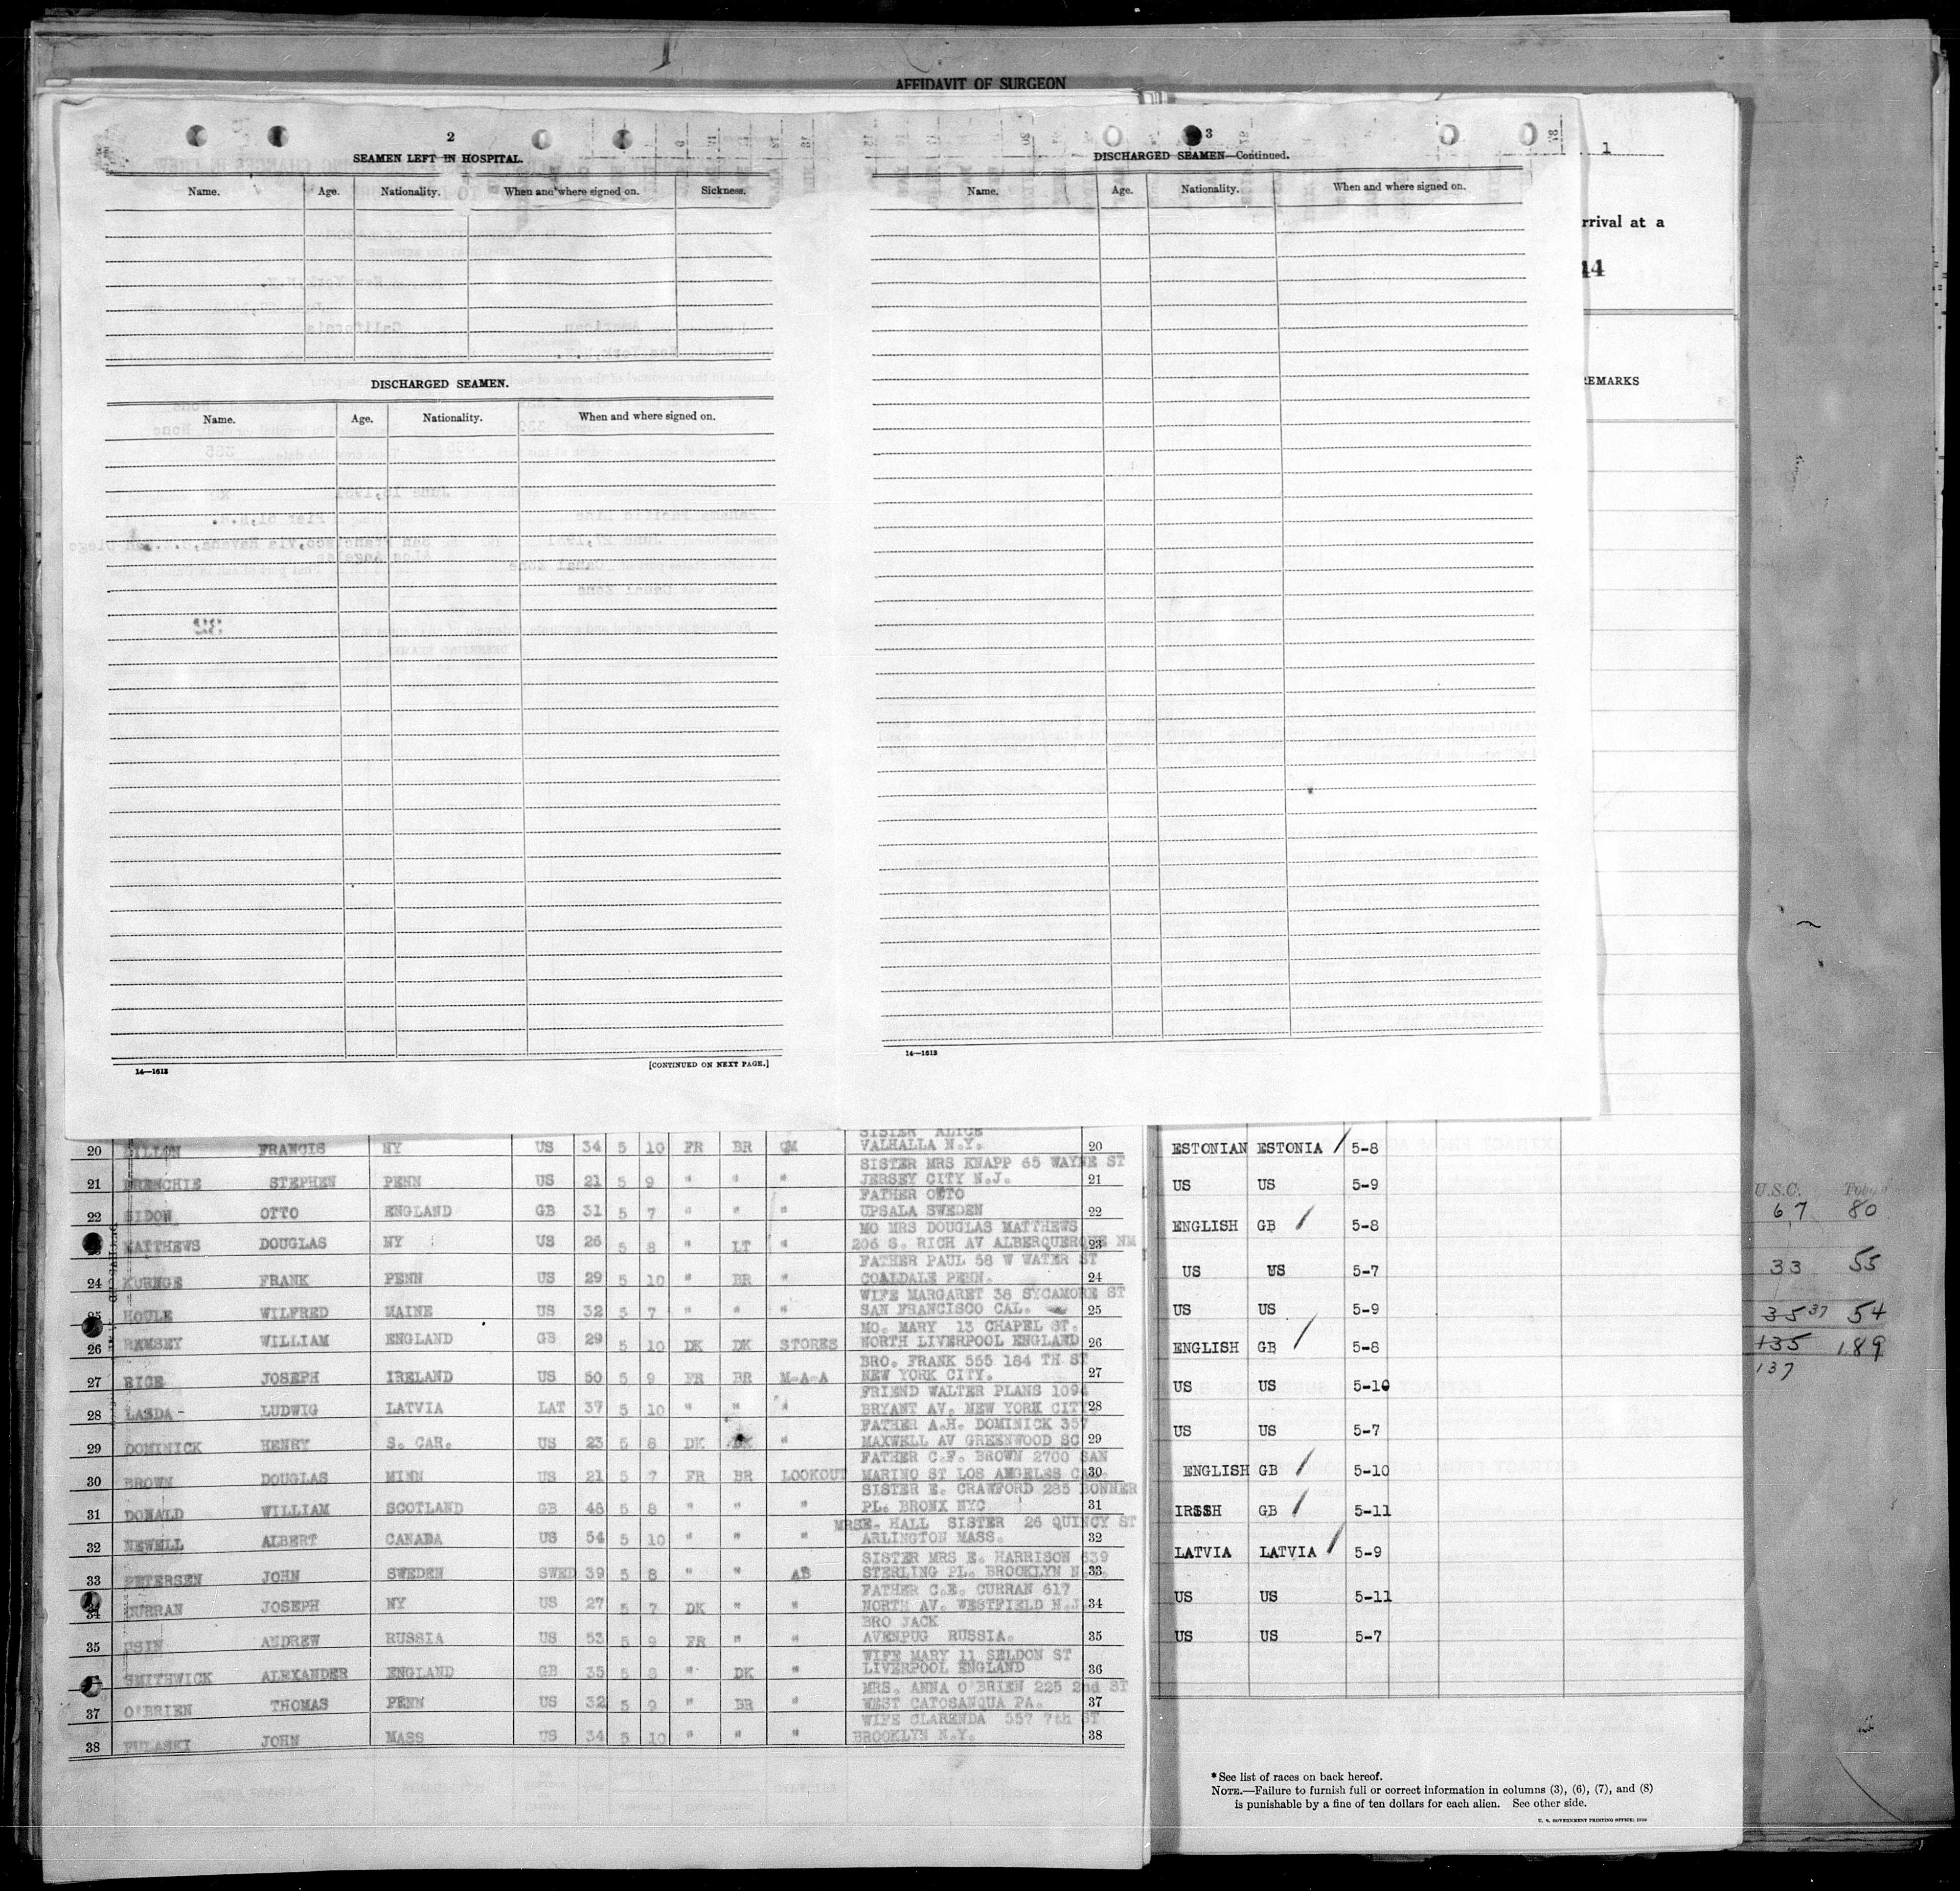 AFFIDAVIT OF SURGEON
2
SEAMEN LEFT IN HOSPITAL.
Name. Age. Nationality. When and where signed on. Sickness.
DISCHARGED SEAMEN.
Name. Age. Nationality. When and where signed on.
14—1613 [CONTINUED ON NEXT PAGE.]
3
DISCHARGED SEAMEN—Continued.
Name. Age. Nationality. When and where signed on.
14—1613
1
rrival at a
44
REMARKS
SISTER ALICE
20 DILLON FRANCIS NY US 34 5 10 FR BR QM VALHALLA N.Y. 20
SISTER MRS KNAPP 65 WAYNE ST
21 STEPHEN PENN US 21 5 9 " " " JERSEY CITY N.J. 21
FATHER OTTO
22 SIDON OTTO ENGLAND GB 31 5 7 " " " UPSALA SWEDEN 22
MO MRS DOUGLAS MATTHEWS
MATTHEWS DOUGLAS NY US 26 5 8 " LT " 206 S. RICH AV ALBERQUERQUE NM 23
FATHER PAUL 58 W WATER ST
24 FRANK PENN US 29 5 10 " BR " COALDALE PENN. 24
WIFE MARGARET 38 SYCAMORE ST
25 HOULE WILFRED MAINE US 32 5 7 " " " SAN FRANCISCO CAL. 25
MO. MARY 13 CHAPEL ST.
26 RAMSEY WILLIAM ENGLAND GB 29 5 10 DK DK STORES NORTH LIVERPOOL ENGLAND 26
BRO. FRANK 555 184 TH ST
27 RICE JOSEPH IRELAND US 50 5 9 FR BR M-A-A NEW YORK CITY. 27
FRIEND WALTER PLANS 1094
28 LASDA - LUDWIG LATVIA LAT 37 5 10 " " " BRYANT AV. NEW YORK CITY 28
FATHER A.H. DOMINICK 357
29 DOMINICK HENRY S. CAR. US 23 5 8 DK DK " MAXWELL AV GREENWOOD SC 29
FATHER C.F. BROWN 2700 SAN
30 BROWN DOUGLAS MINN US 21 5 7 FR BR LOOKOUT MARINO ST LOS ANGELES CAL. 30
SISTER E. CRAWFORD 285 BONNER
31 DONALD WILLIAM SCOTLAND GB 48 5 8 " " " PL. BRONX NYC 31
MRSE. HALL SISTER 26 QUINCY ST
32 NEWELL ALBERT CANADA US 54 5 10 " " " ARLINGTON MASS. 32
SISTER MRS E. HARRISON 639
33 PETERSEN JOHN SWEDEN SWED 39 5 8 " " AB STERLING PL. BROOKLYN 33
FATHER C.E. CURRAN 617
34 CURRAN JOSEPH NY US 27 5 7 DK " " NORTH AV. WESTFIELD N.J. 34
BRO JACK
35 USIN ANDREW RUSSIA US 53 5 9 FR " " AVENPUG RUSSIA. 35
WIFE MARY 11 SELDON ST
SMITHWICK ALEXANDER ENGLAND GB 35 5 8 " DK " LIVERPOOL ENGLAND 36
MRS. ANNA O'BRIEN 225 2nd ST
37 O'BRIEN THOMAS PENN US 32 5 9 " BR " WEST CATOSANQUA PA. 37
WIFE CLARENDA 557 7th ST
38 PULASKI JOHN MASS US 34 5 10 " " " BROOKLYN N.Y. 38
ESTONIAN ESTONIA / 5-8
US US 5-9
ENGLISH GB / 5-8
US US 5-7
US US 5-9
ENGLISH GB / 5-8
US US 5-10
US US 5-7
ENGLISH GB / 5-10
IRSSH GB / 5-11
LATVIA LATVIA / 5-9
US US 5-11
US US 5-7
*See list of races on back hereof.
NOTE.—Failure to furnish full or correct information in columns (3), (6), (7), and (8)
is punishable by a fine of ten dollars for each alien. See other side.
U. S. GOVERNMENT PRINTING OFFICE: 1930
U.S.C.
67 80
33 55
35 37 54
135 189
137